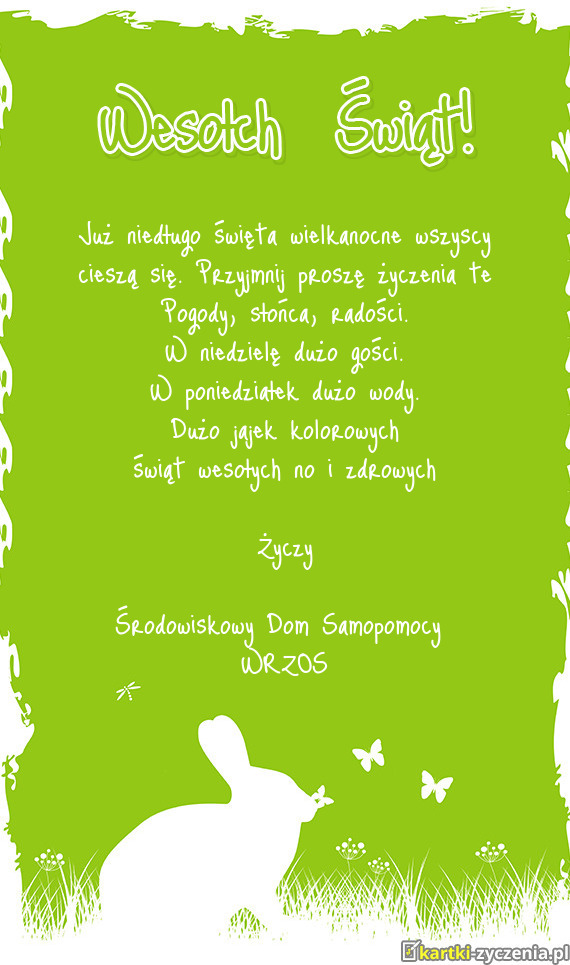 Wesołch Świąt!
Już niedługo święta wielkanocne wszyscy
cieszą się. Przyjmnij proszę życzenia te
Pogody, słońca, radości.
W niedzielę dużo gości.
W poniedziałek dużo wody.
Dużo jajek kolorowych
świąt wesołych no i zdrowych
Życzy
Środowiskowy Dom Samopomocy
WRZOS
kartki-zyczenia.pl